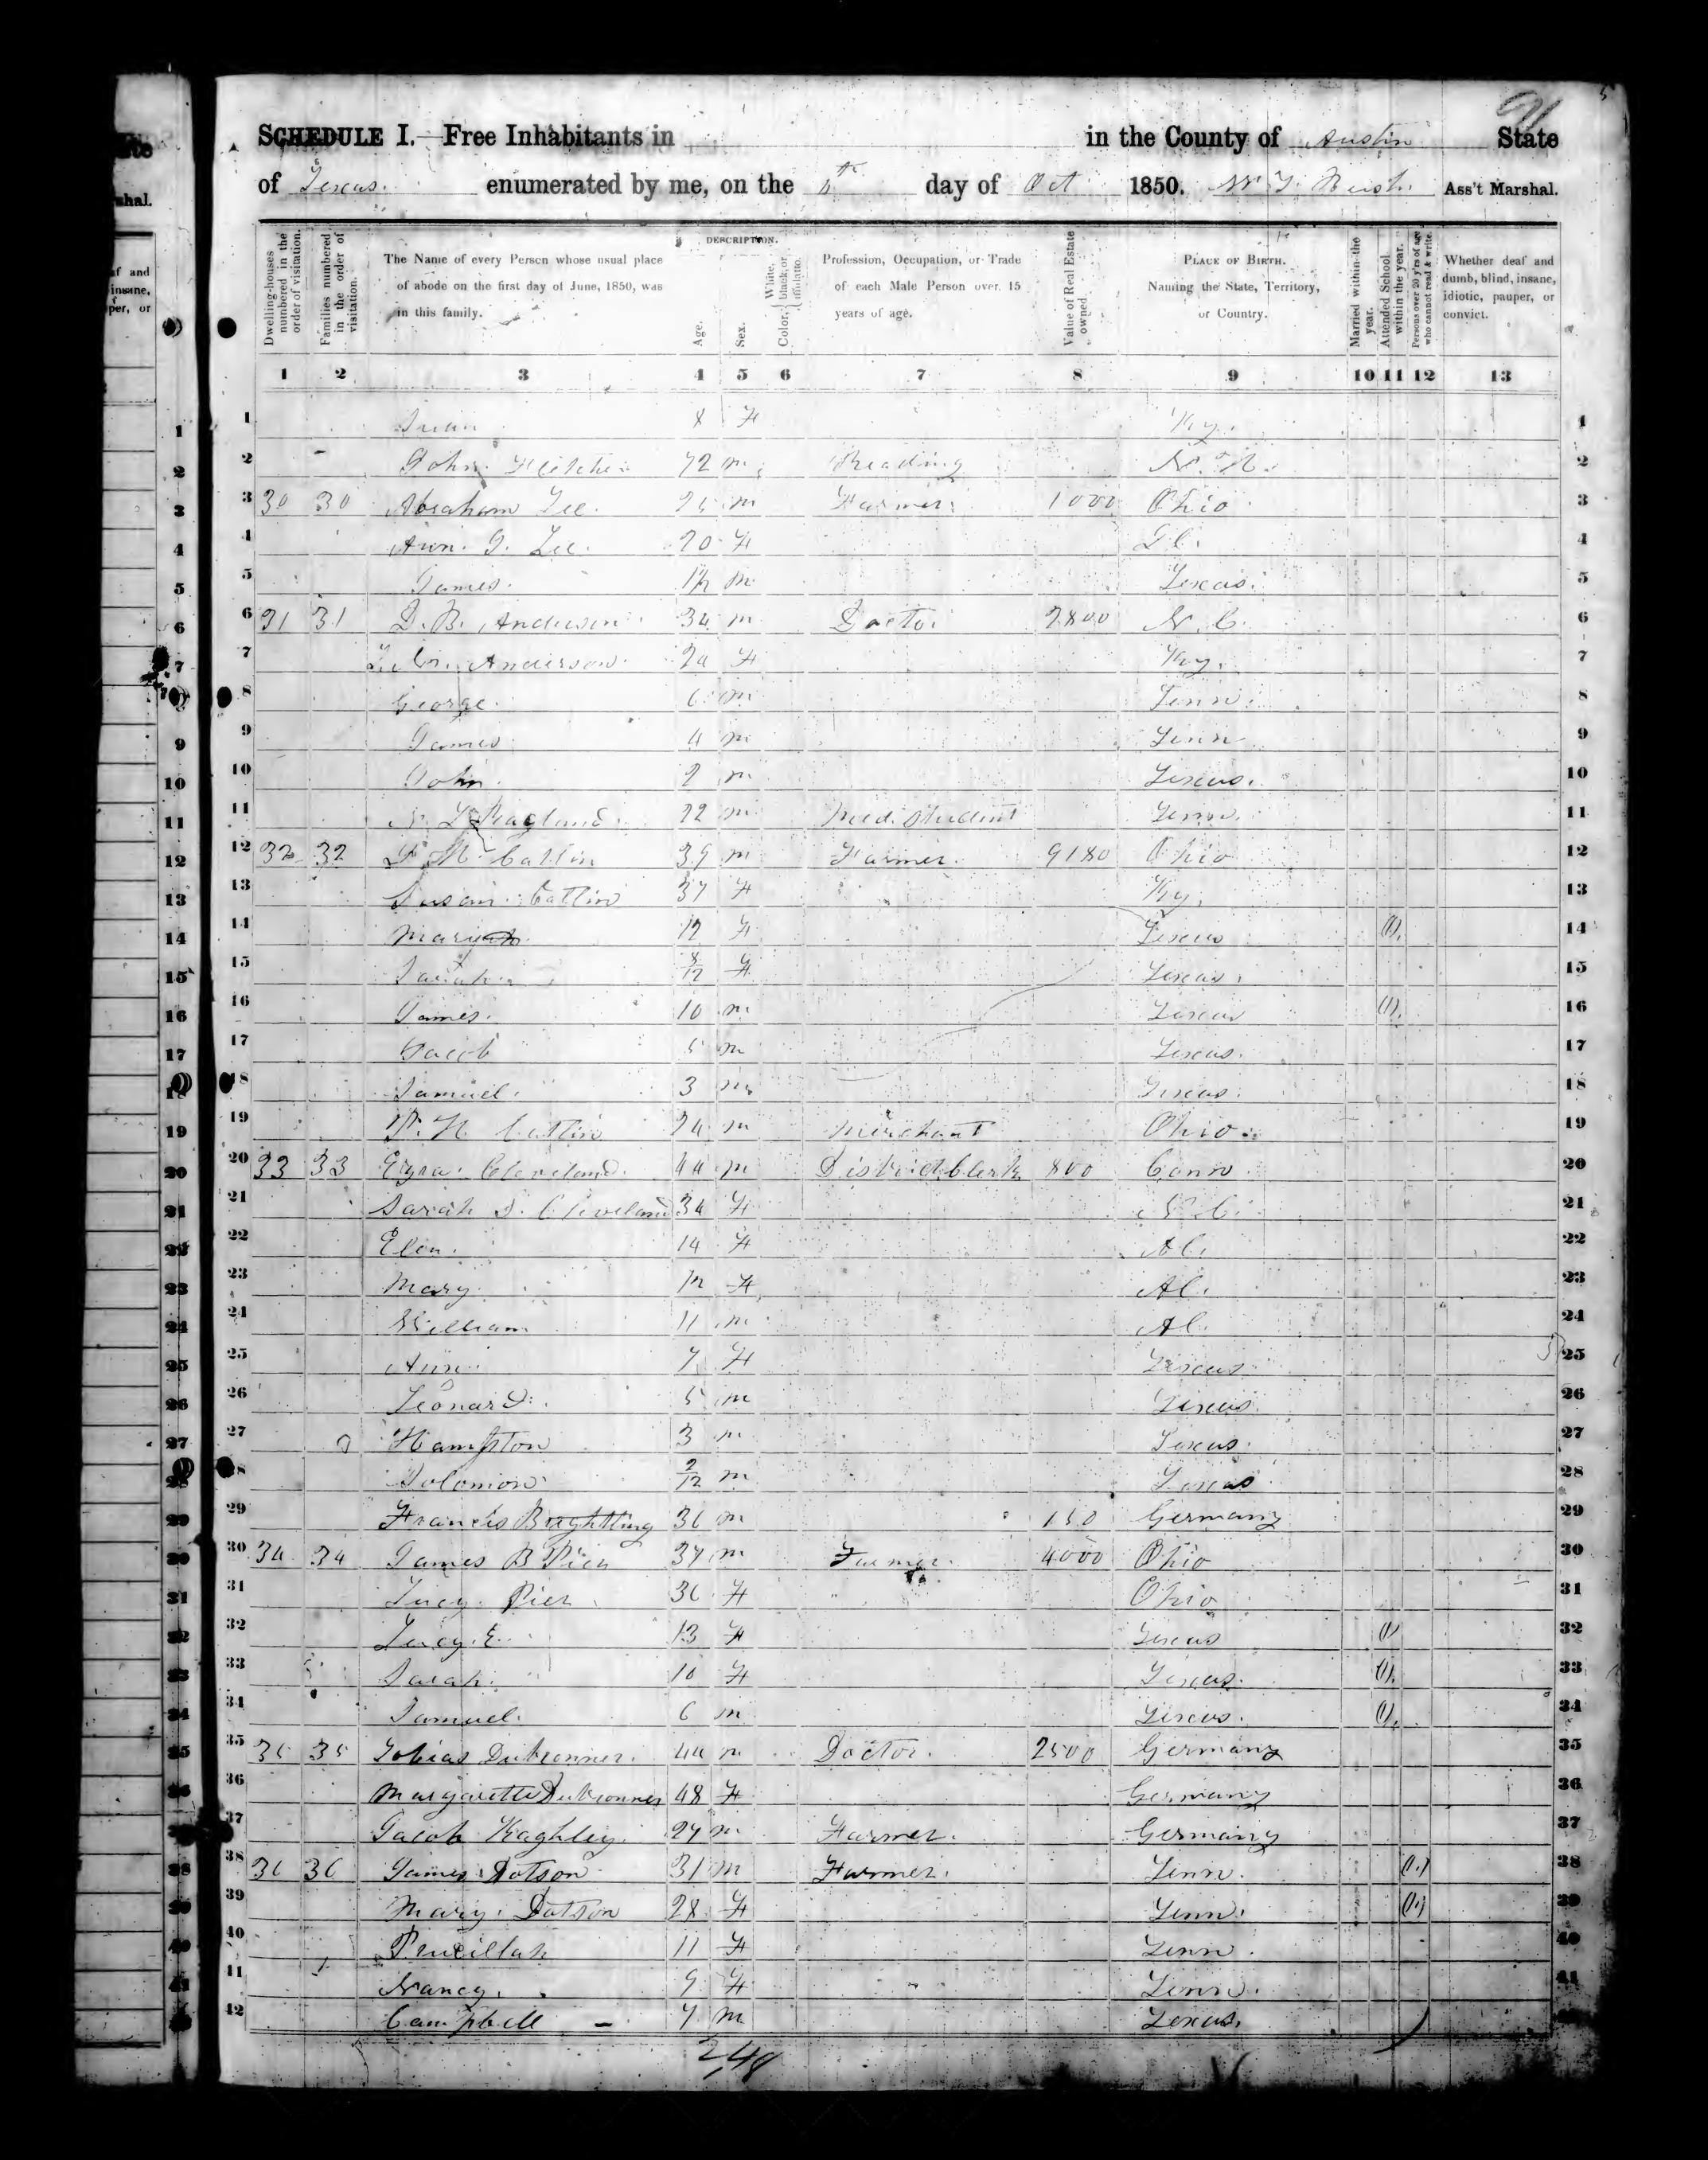 SCHEDULE I. Free Inhabitants in in the County of Austin State
of Texas. enumerated by me, on the day of Oct 1850. Ass't Marshal.
DESCRIPTION.
Dwelling-houses numbered in the order of visitation.
Families numbered in the order of visitation.
The Name of every Person whose usual place of abode on the first day of June, 1850, was in this family.
Age.
Sex.
Color, White, black, or mulatto.
Profession, Occupation, or Trade of each Male Person over 15 years of age.
Value of Real Estate owned.
PLACE OF BIRTH. Naming the State, Territory, or Country.
Married within the year.
Attended School within the year.
Persons over 20 y'rs of age who cannot read & write.
Whether deaf and dumb, blind, insane, idiotic, pauper, or convict.
1 2 3 4 5 6 7 8 9 10 11 12 13
1 8 F Ky. 1
2 John 72 m N. H. 2
3 30 30 Abraham Lee 25 m Farmer 1000 Ohio 3
4 Ann. G. Lee. 20 F 4
5 James. m Texas. 5
6 31 31 D. B. Anderson 34 m Doctor 2800 N. C. 6
7 Anderson 24 F Ky. 7
8 George. 6 m Tenn. 8
9 James 4 m Tenn 9
10 John 2 m Texas. 10
11 Ragland 22 m Med. Student Tenn. 11
12 32 32 Catlin 39 m Farmer. 9180 Ohio 12
13 Susan Catlin 37 F Ky. 13
14 Mary 12 F Texas (1). 14
15 Sarah 8/12 F Texas. 15
16 James. 10 m Texas (1). 16
17 Jacob 5 m Texas. 17
18 Samuel. 3 m Texas. 18
19 H Catlin 24 m Merchant Ohio. 19
20 33 33 Ezra Cleveland. 44 m District Clerk 800 Conn. 20
21 Sarah S. Cleveland 34 F N. C. 21
22 Elen. 14 F Al. 22
23 Mary 12 F Al. 23
24 William 11 m Al. 24
25 Ann. 7 F Texas 25
26 Leonard. 5 m Texas 26
27 Hampton 3 m Texas. 27
28 Solomon 2/12 m Texas 28
29 Francis Brightling 36 m 150 Germany 29
30 34 34 James B Pier 37 m Farmer. 4000 Ohio 30
31 Lucy Pier 36 F Ohio 31
32 Lucy. E. 13 F Texas (1) 32
33 Sarah. 10 F Texas. (1). 33
34 Samuel. 6 m Texas. (1). 34
35 35 35 Tobias Dubronner. 44 m Doctor. 2500 Germany 35
36 Margarette Dubronner 48 F Germany 36
37 Jacob Kaghley. 27 m Farmer. Germany 37
38 36 36 James Dotson 31 m Farmer. Tenn. (1.) 38
39 Mary. Dotson 28 F Tenn. (1.) 39
40 Pricillah 11 F Tenn. 40
41 Nancy. 9 F Tenn. 41
42 Campbell 7 m Texas.